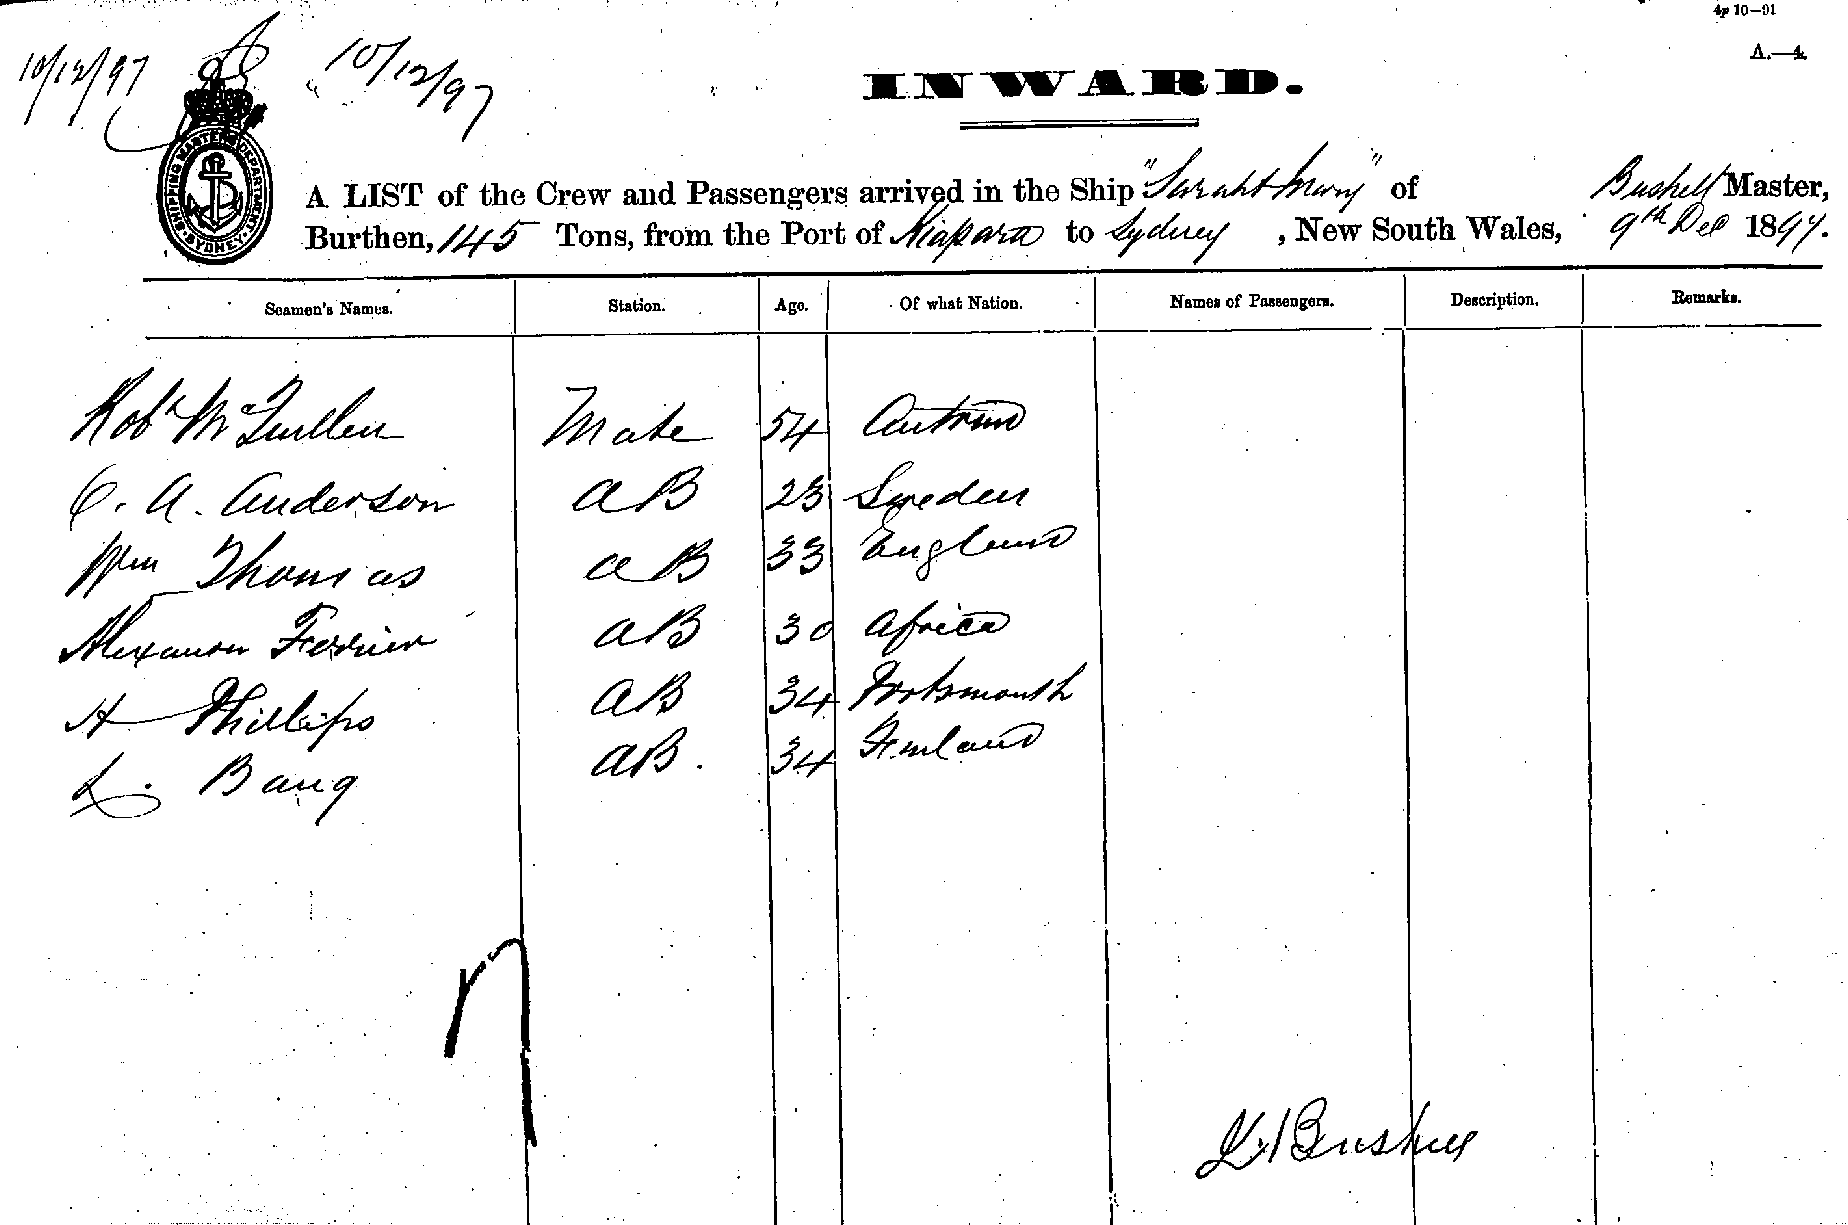 4p 10—91
A.—4.
10/12/97
10/12/97
INWARD.
SHIPPING MASTER'S DEPARTMENT SYDNEY
A LIST of the Crew and Passengers arrived in the Ship "Sarah & Mary" of Bushell Master,
Burthen, 145 Tons, from the Port of to Sydney, New South Wales, 9th Dec 1897.
Seamen's Names. Station. Age. Of what Nation. Names of Passengers. Description. Remarks.
Robt McQuillen Mate 54 Antrim
C. A. Anderson AB 23 Sweden
Wm Thomas AB 33 England
Alexander Ferrier AB 30 Africa
H Phillips AB 34 Portsmouth
L. Bang AB. 34 Finland
7
Bushell